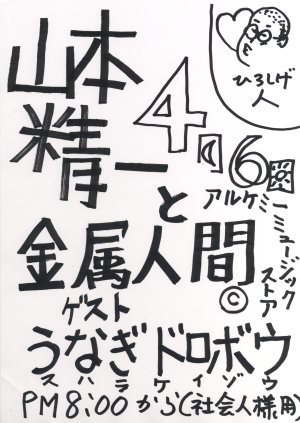 ひろしげ
人
山本
精一
4月6圀
と
アルケミーミュージックストア
金属人間
©
ゲスト
うなぎドロボウ
スハラケイゾウ
PM8:00から(社会人様用)